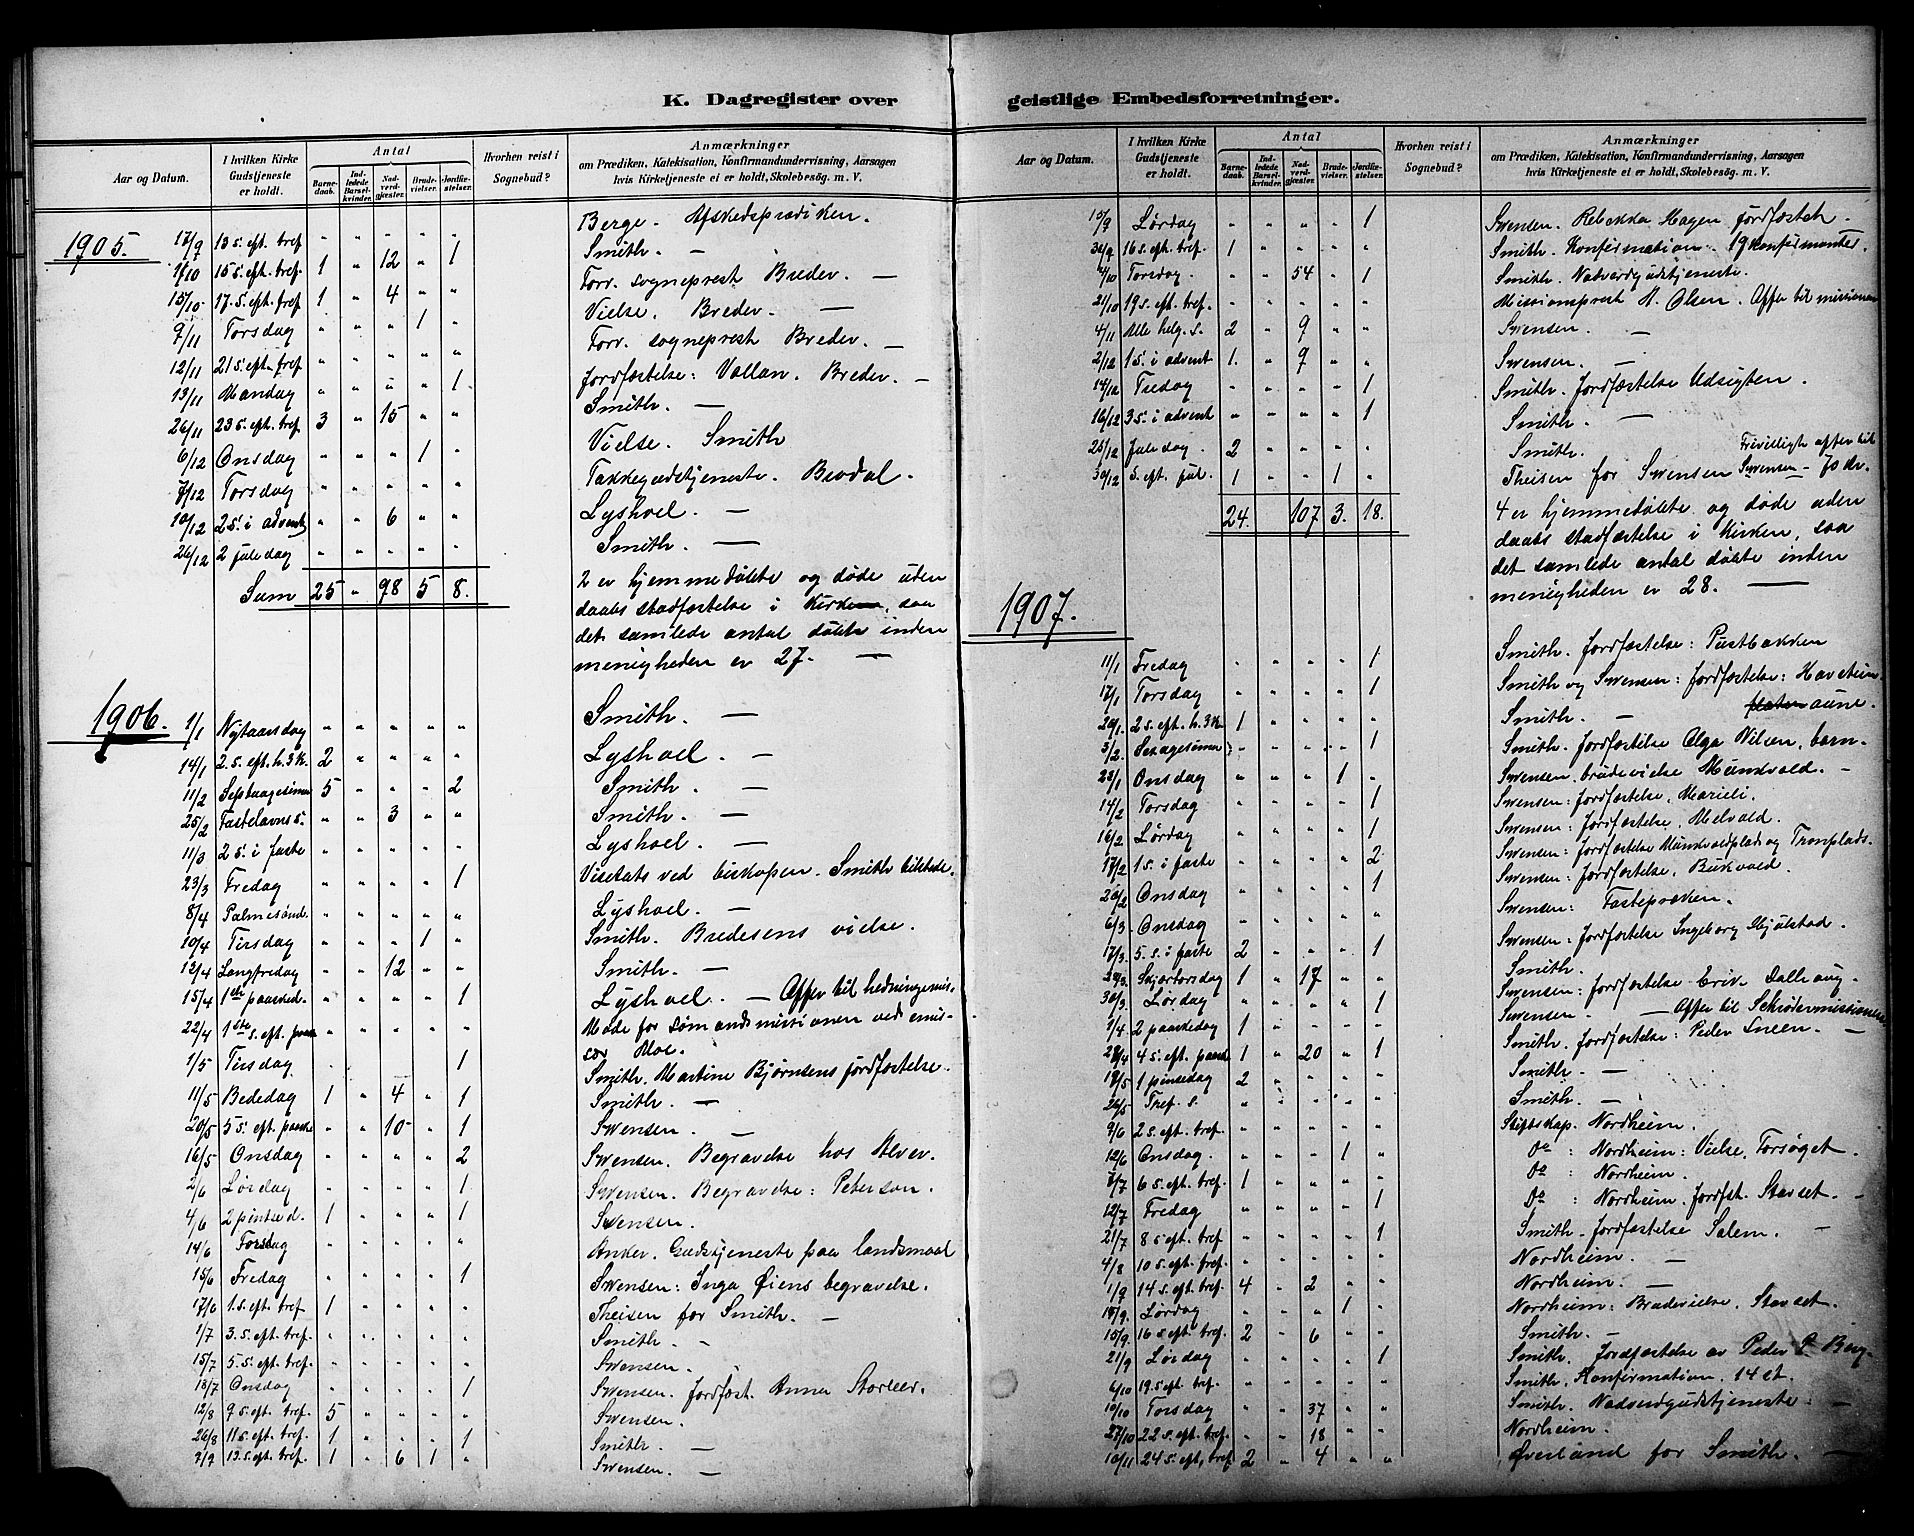 K. Dagregister over geistlige Embedsforretninger.
Aar og Datum. I hvilken Kirke Gudstjeneste er holdt. Antal Barnedaab. Indledede Barselkvinder. Nadverdgjæster. Brudevielser. Jordfæstelser. Hvorhen reist i Sognebud? Anmærkninger om Prædiken, Katekisation, Konfirmandundervisning, Aarsagen hvis Kirketjeneste ei er holdt, Skolebesög. m. V.
1905.
17/9 13 s. eft. tref. " " " " " Berge. Afskedsprædiken.
1/10 15 s. eft. tref. 1 " 12 " 1 Smith. —
15/10 17. s. eft. tref 1 " 4 " " Forr. sogneprest Breder. —
9/11 Torsdag " " " 1 " Vielse. Breder. —
12/11 21 s. eft. tref " " " " " Forr. sogneprest Breder. —
13/11 Mandag " " " " 1 Jordfæstelse: Vollan. Breder. —
26/11 23 s. eft. tref 3 " 15 " " Smith. —
6/12 Onsdag " " " 1 " Vielse. Smith
7/12 Torsdag " " " " " Takkegudstjeneste.
10/12 2 s. i advent " " 6 " " Lyshoel. —
26/12 2 juledag " " " " " Smith. —
Sum 25 " 98 5 8.
2 er hjemmedøbte og døde uden
daabs stadfæstelse i Kirken, saa
det samlede antal døbte inden
menigheden er 27. —
1906.
1/1 Nytaarsdag " " " " " Smith. —
14/1 2. s. eft. h. 3 K. 2 " " " " Lyshoel. —
11/2 Septuagesima 5 " " " 2 Smith. —
25/2 Fastelavns s. " " 3 " " Smith. —
11/3 2 s. i faste " " " " " Lyshoel. —
23/3 Fredag " " " " 1 Visitats ved biskopen. Smith tilstede.
8/4 Palmesønd. " " " " " Lyshoel. —
10/4 Tirsdag " " " 1 " Smith. Bredesens vielse.
12/4 Langfredag " " 12 " " Smith. —
15/4 1ste paasked. " " " " 1 Lyshoel. — Offer til hedningemis-
22/4 1ste s. eft. paas " " " " " Møde for sømandsmissionen ved emis-
sær Moe.
1/5 Tirsdag 1 Smith. Martine Bjørnsens jordfæstelse.
11/5 Bededag 1 " 4 " 1 Smith. —
20/5 5 s. eft. paaske " " 10 " 1 Swensen. —
16/5 Onsdag " " " " 2 Swensen. Begravelse hos Alver.
2/6 Lørdag " " " " 1 Swensen. Begravelse: Peterson.
4/6 2 pintsed. 1 " " " 1 Swensen.
14/6 Torsdag " " " " " Anker. Gudstjeneste paa landsmaal
15/6 Fredag " " " " 1 Swensen: Inga Øiens begravelse.
17/6 1. s. eft. tref 1 " " " " Theisen for Smith. —
1/7 3. s. eft. tref. " " " " " Smith. —
15/7 5. s. eft. tref. " " " " " Swensen. —
18/7 Onsdag " " " " 1 Swensen. Jordfæst. Anna Storleer.
12/8 9 s. eft. tref. 5 " " " " Swensen.
26/8 11 s. eft. tref. 1 " " " 1 Smith. —
9/9 13. s. eft. tref. 1 " 6 1 " Swensen. —
Aar og Datum. I hvilken Kirke Gudstjeneste er holdt. Antal Barnedaab. Indledede Barselkvinder. Nadverdgjæster. Brudevielser. Jordfæstelser. Hvorhen reist i Sognebud? Anmærkninger om Prædiken, Katekisation, Konfirmandundervisning, Aarsagen hvis Kirketjeneste ei er holdt, Skolebesög. m. V.
15/9 Lørdag " " " " 1 Swensen. Rebekka Hagen jordfæstet.
30/9 16 s. eft. tref 1 " " " " Smith. Konfirmation. 19 konfirmanter.
4/10 Torsdag " " 54 " 1 Smith. Nadverdgudstjeneste.
21/10 19 s. eft. tref. " " " " " Missionsprest N. Olsen. Offer til missionen
4/11 Alle helg. s. 2 " 9 " " Swensen. —
2/12 1 s. i advent 1. " 9 " " Swensen. —
14/12 Fredag " " " " 1 Smith. Jordfæstelse Udsigten.
16/12 3 s. i advent " " " " 1 Smith. —
25/12 Juledag 2 " " " " Smith. Frivilligt offer til
30/12 S. eft. jul. 1 " " 1 " Theisen for Swensen Swensen —
24. 107 3. 18.
4 er hjemmedøbte og døde uden
daabs stadfæstelse i Kirken, saa
det samlede antal døbte inden
menigheden er 28. —
1907.
11/1 Fredag " " " " 1 Smith. Jordfæstelse: Pustbakken
17/1 Torsdag " " " " 1 Smith og Swensen: Jordfæstelse:
20/1 2 s. eft. h. 3 K. 1 " " " " Smith. — aune.
3/2. Sexagesima " " " " 1 Smith. Jordfæstelse Olga Nilsen, barn-
23/1 Onsdag " " " 1 " Swensen. brudevielse Munkvold. —
14/2 Torsdag " " " " 1 Swensen: Jordfæstelse. Marieli.
16/2 Lørdag " " " " 1 Swensen: Jordfæstelse. Melvold.
17/2 1 s. i faste " " " " 2 Swensen: Jordfæstelse Munkvoldplads og Tromplads.
20/2 Onsdag " " " " 1 Swensen: Jordfæstelse. Bukvold.
6/3 Onsdag " " " " " Swensen: Fastepræken.
17/3 5. s. i faste 2 " " " 1 Swensen: Jordfæstelse Ingeborg Gjølstad.
28/3. Skjærtorsdag 1 " 17 " " Smith.
30/3 Lørdag " " " " 1 Swensen: Jordfæstelse Erik Dalhaug
1/4 2 paaskedag 1 " " " " Swensen. — Offer til
28/4 4 s. eft. paaske 1 " 20 " 1 Smith. Jordfæstelse: Peder Sneen. —
19/5 1 pinsedag 2 " " " " Smith. —
26/5 Tref. s. " " " " " Smith. —
9/6 2 s. eft. tref. " " " " " Stiftskap. Nordheim.
12/6 Onsdag. " " " 1 " Do : Nordheim: Vielse, Torsøget.
7/7 6 s. eft. tref. 1 " " " " Do : Nordheim.
12/7 Fredag " " " " 1 Do : Nordheim. Jordfst. Stavset. —
21/7 8 s. eft. tref " " " " 1 Smith. Jordfæstelse Salem. —
4/8 10 s. eft. tref. " " " " " Nordheim. —
1/9 14 s. eft. tref. 4 " 2 " " Nordheim. —
14/9. Lørdag " " " 1 " Nordheim: Brudevielse. Stavset.
15/9 16 s. eft. tref 2 " 6 " " Smith. —
21/9 Lørdag " " " " 1 Smith. Jordfæstelse av Peder P. Berg.
6/10 19. s. eft. tref. " " " " " Smith. Konfirmation. 14 st.
10/10 Torsdag " " 37 " " Smith. Nadverdgudstjeneste. —
27/10 22 s. eft. tref. " " 18 " " Nordheim.
10/11 24 s. eft. tref 2 " 4 " " Øverland for Smith. —